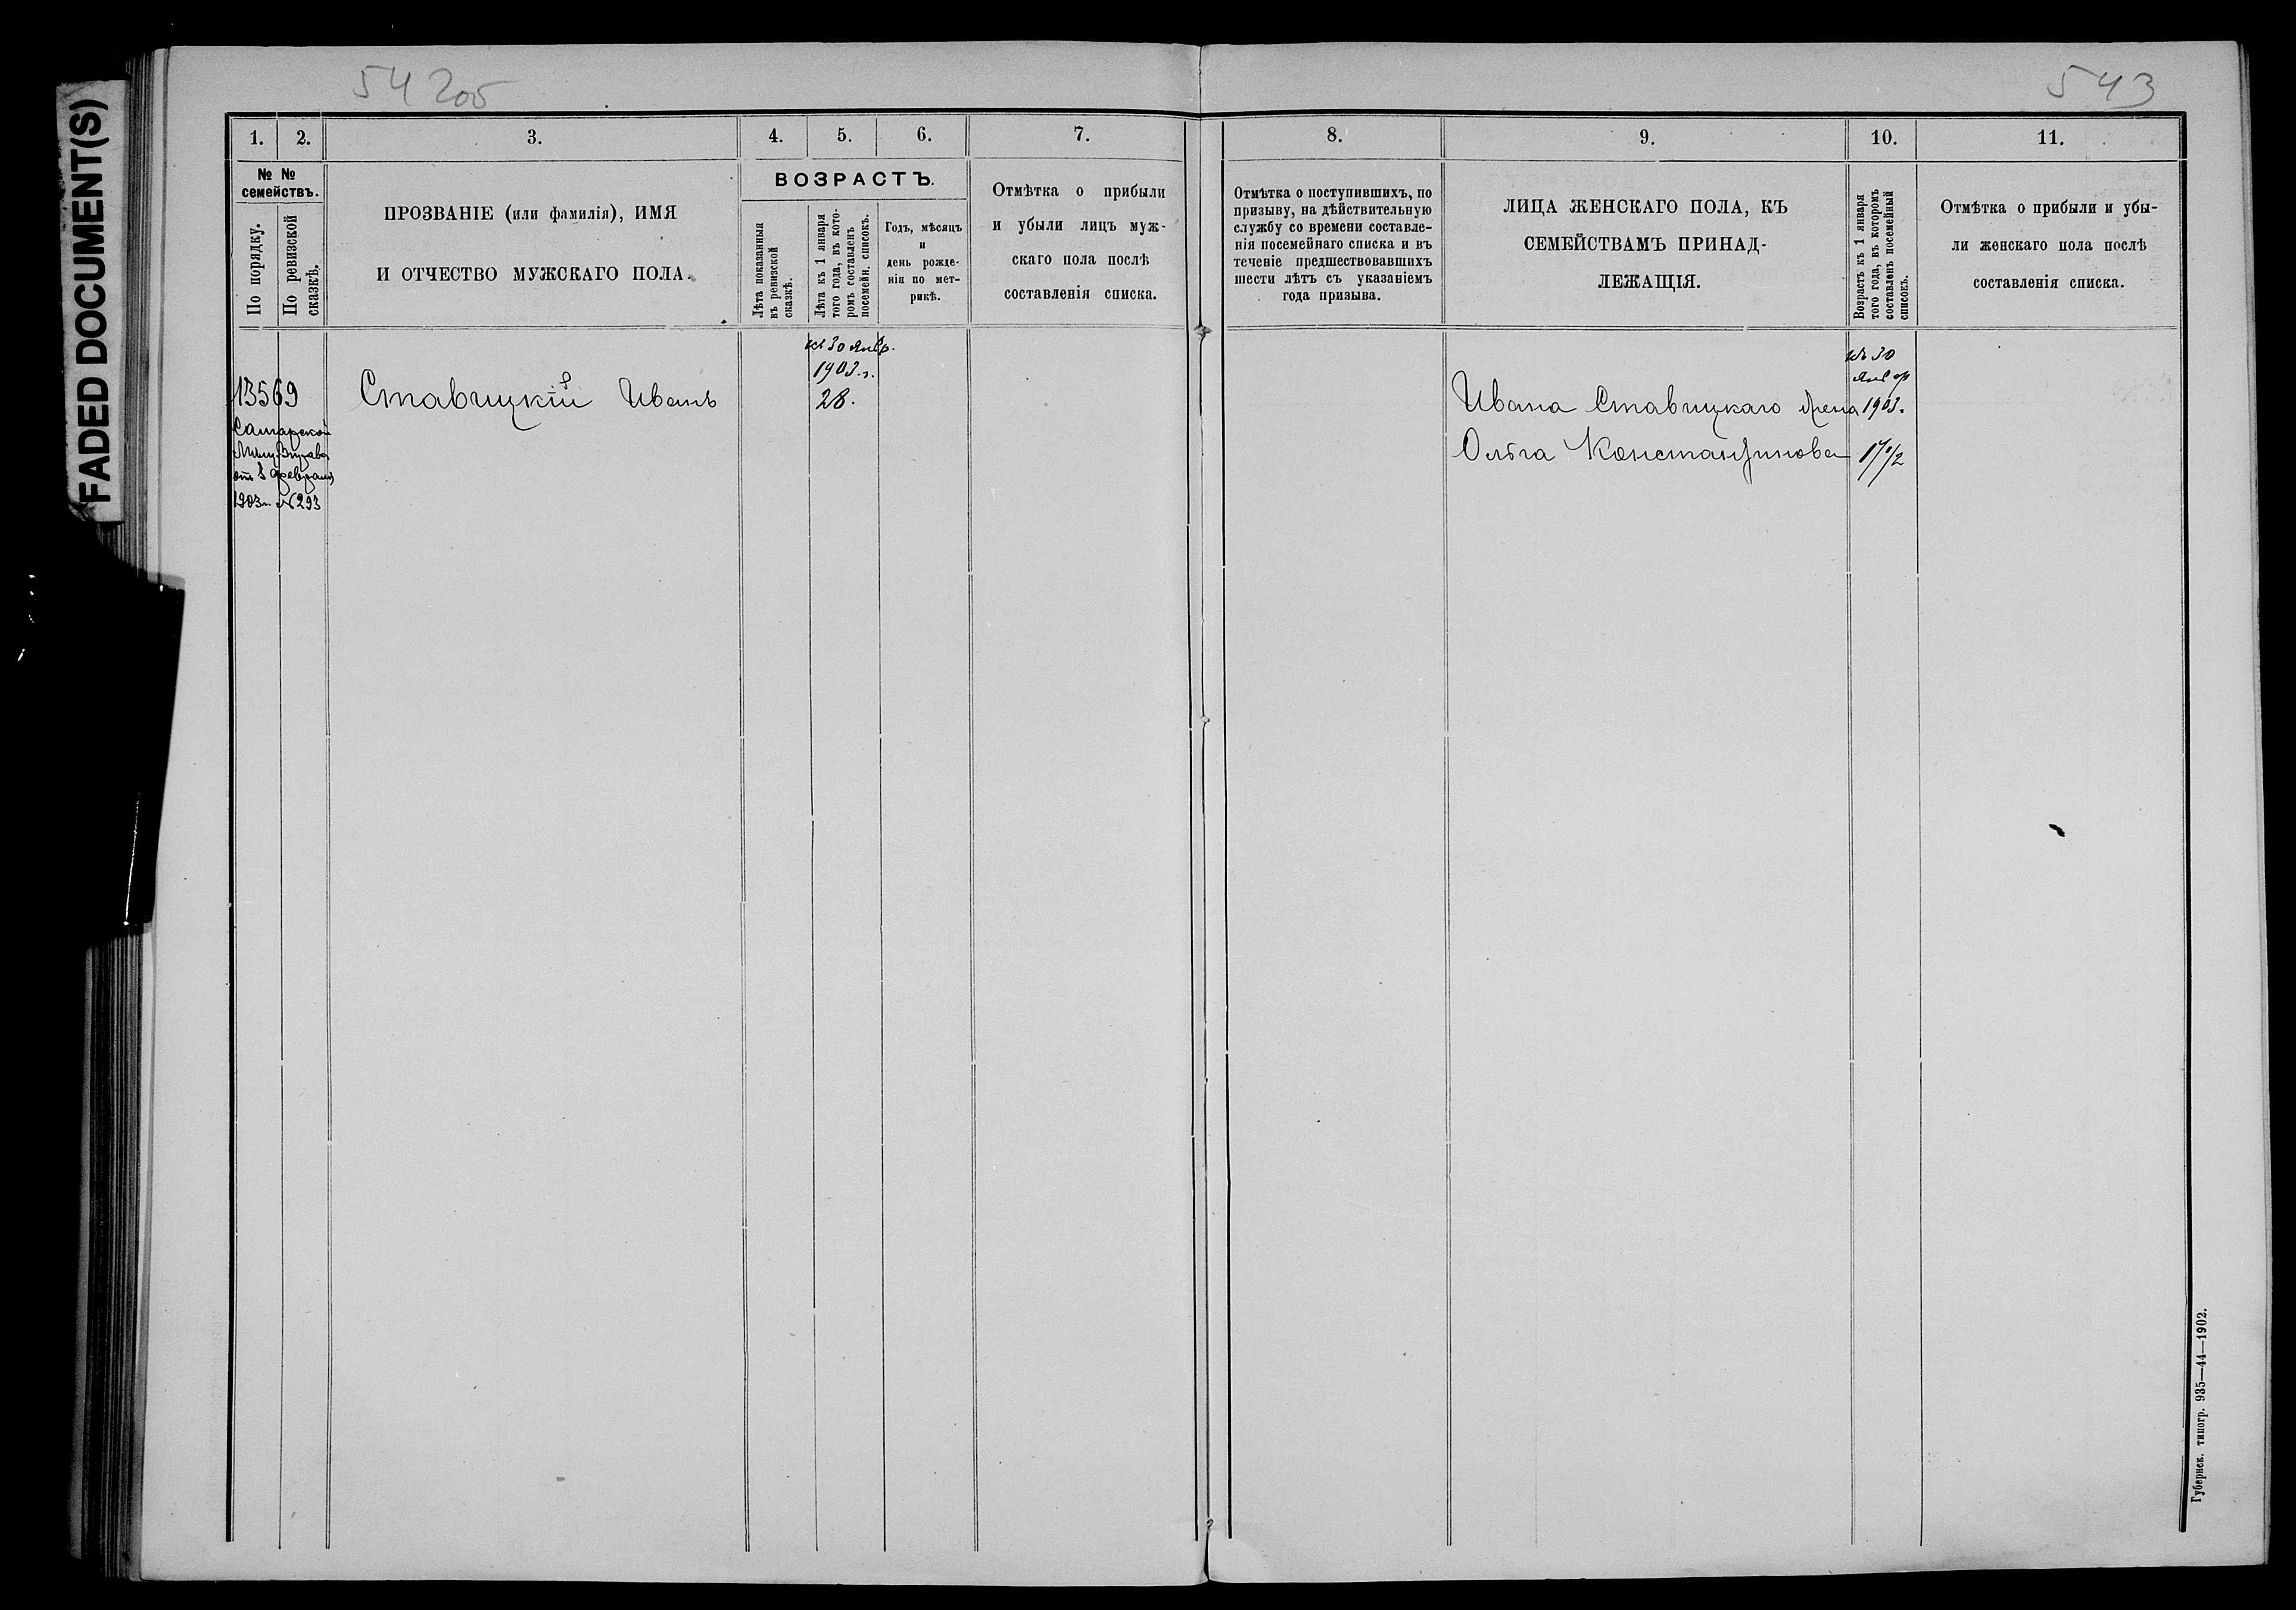 FADED DOCUMENT(S)
54 205
543
1.
2.
3.
4.
5.
6.
7.
8.
9.
10.
11.
№ №
семействъ.
По порядку.
По ревизской
сказкѣ.
ПРОЗВАНІЕ (или фамилія), ИМЯ
И ОТЧЕСТВО МУЖСКАГО ПОЛА.
ВОЗРАСТЪ.
Лѣта показанныя
въ ревизской
сказкѣ.
Лѣта къ 1 января
того года, въ кото-
ромъ составленъ
посемейн. списокъ.
Годъ, мѣсяцъ
и
день рожде-
нія по мет-
рикѣ.
Отмѣтка о прибыли
и убыли лицъ муж-
скаго пола послѣ
составленія списка.
Отмѣтка о поступившихъ, по
призыву, на дѣйствительную
службу со времени составле-
нія посемейнаго списка и въ
теченіе предшествовавшихъ
шести лѣтъ съ указаніемъ
года призыва.
ЛИЦА ЖЕНСКАГО ПОЛА, КЪ
СЕМЕЙСТВАМЪ ПРИНАД-
ЛЕЖАЩІЯ.
Возрастъ къ 1 января
того года, въ которомъ
составленъ посемейный
списокъ.
Отмѣтка о прибыли и убы-
ли женскаго пола послѣ
составленія списка.
13569
Самарской
Мѣщ. Управы
отъ 8 февраля
1903 г. № 293
Ставицкій Иванъ
къ 30 Янв.
1903 г.
28.
Ивана Ставицкаго жена
Ольга Константинова
къ 30
Янв
1903.
17 1/2
Губернск. типогр. 935—44—1902.